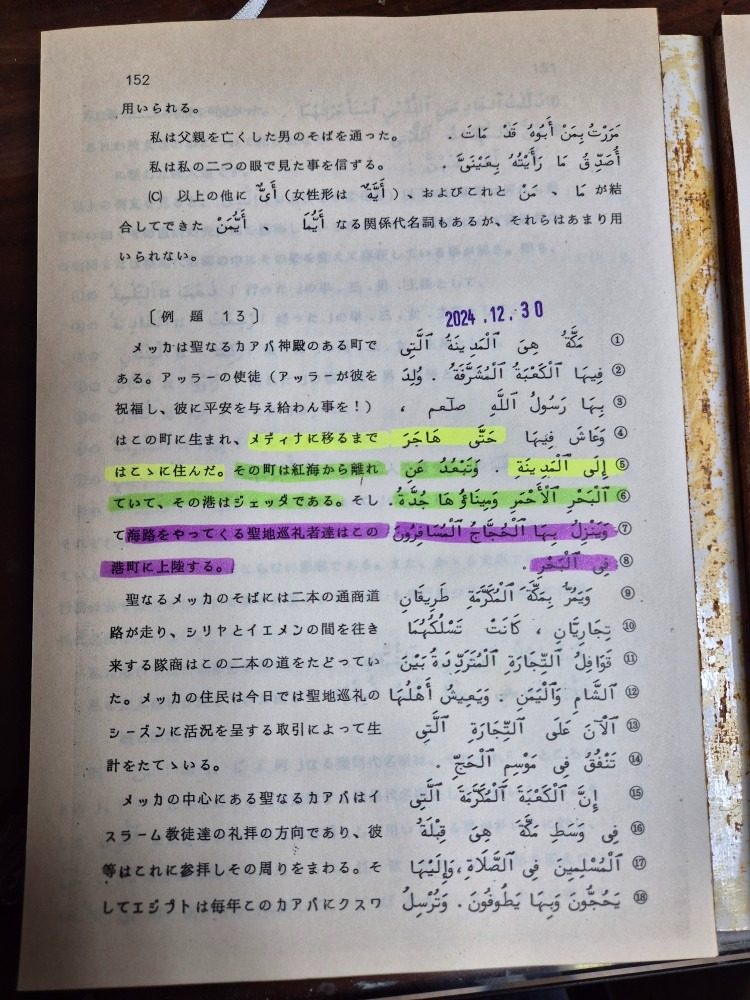 152
用いられる。
私は父親を亡くした男のそばを通った。 مَرَرْتُ بِمَنْ أَبُوهُ قَدْ مَاتَ .
私は私の二つの眼で見た事を信ずる。 أُصَدِّقُ مَا رَأَيْتُهُ بِعَيْنَىَّ .
(C) 以上の他に أَىٌّ (女性形は أَيَّةٌ )、およびこれと مَنْ 、 مَا が結
合してできた أَيُّمَنْ 、 أَيُّمَا なる関係代名詞もあるが、それらはあまり用
いられない。
〔例題 13〕 2024.12.30
メッカは聖なるカアバ神殿のある町で مَكَّةُ هِىَ ٱلْمَدِينَةُ ٱلَّتِى ①
ある。アッラーの使徒（アッラーが彼を فِيهَا ٱلْكَعْبَةُ ٱلْمُشَرَّفَةُ . وُلِدَ ②
祝福し、彼に平安を与え給わん事を！） بِهَا رَسُولُ ٱللَّهِ صلعم ، ③
はこの町に生まれ、メディナに移るまで وَعَاشَ فِيهَا حَتَّى هَاجَرَ ④
はこゝに住んだ。その町は紅海から離れ إِلَى ٱلْمَدِينَةِ . وَتَبْعُدُ عَنِ ⑤
ていて、その港はジェッダである。そし ٱلْبَحْرِ ٱلْأَحْمَرِ وَمِينَاؤُهَا جُدَّةُ . ⑥
て海路をやってくる聖地巡礼者達はこの وَيَنْزِلُ بِهَا ٱلْحُجَّاجُ ٱلْمُسَافِرُونَ ⑦
港町に上陸する。 فِى ٱلْبَحْرِ . ⑧
聖なるメッカのそばには二本の通商道 وَيَمُرُّ بِمَكَّةَ ٱلْمُكَرَّمَةِ طَرِيقَانِ ⑨
路が走り、シリヤとイエメンの間を往き تِجَارِيَّانِ ، كَانَتْ تَسْلُكُهُمَا ⑩
来する隊商はこの二本の道をたどってい قَوَافِلُ ٱلتِّجَارَةِ ٱلْمُتَرَدِّدَةُ بَيْنَ ⑪
た。メッカの住民は今日では聖地巡礼の ٱلشَّامِ وَٱلْيَمَنِ . وَيَعِيشُ أَهْلُهَا ⑫
シーズンに活況を呈する取引によって生 ٱلْآنَ عَلَى ٱلتِّجَارَةِ ٱلَّتِى ⑬
計をたてゝいる。 تَنْفُقُ فِى مَوْسِمِ ٱلْحَجِّ . ⑭
メッカの中心にある聖なるカアバはイ إِنَّ ٱلْكَعْبَةَ ٱلْمُكَرَّمَةَ ٱلَّتِى ⑮
スラーム教徒達の礼拝の方向であり、彼 فِى وَسَطِ مَكَّةَ هِىَ قِبْلَةُ ⑯
等はこれに参拝しその周りをまわる。そ ٱلْمُسْلِمِينَ فِى ٱلصَّلَاةِ ، وَإِلَيْهَا ⑰
してエジプトは毎年このカアバにクスワ يَحُجُّونَ وَبِهَا يَطُوفُونَ . وَتُرْسِلُ ⑱